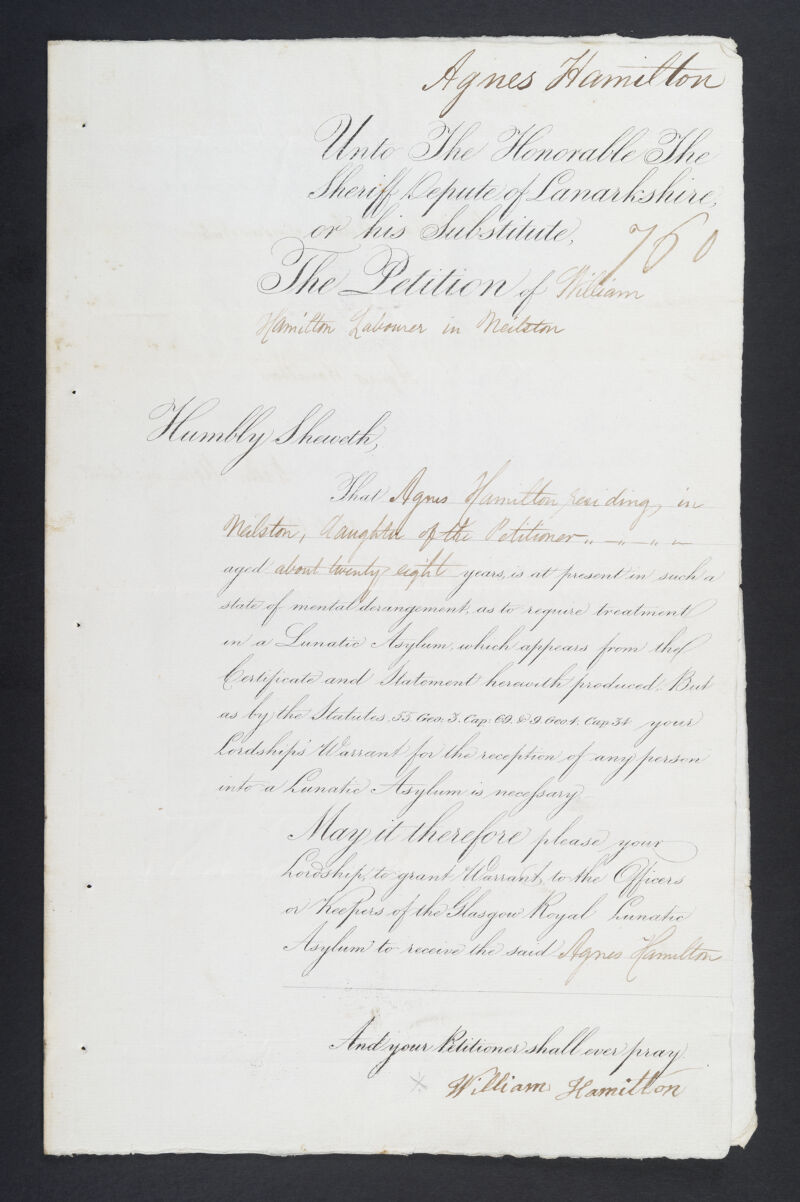 Agnes Hamilton
Unto The Honorable The
Sheriff Depute of Lanarkshire,
or his Substitute,
760
The Petition of William
Hamilton Labourer in Neilston
Humbly Sheweth,
That Agnes Hamilton residing, in
Neilston, daughter of the Petitioner „ „ „ „
aged about twenty eight years, is at present in such a
state of mental derangement, as to require treatment
in a Lunatic Asylum, which appears from the
Certificate and Statement herewith produced. But
as by the Statutes 55. Geo: 3. Cap: 69. & 9. Geo 4. Cap 34 your
Lordship's Warrant for the reception of any person
into a Lunatic Asylum is necessary
May it therefore please your
Lordship, to grant Warrant, to the Officers
or Keepers of the Glasgow Royal Lunatic
Asylum to receive the said Agnes Hamilton
And your Petitioner shall ever pray.
× William Hamilton